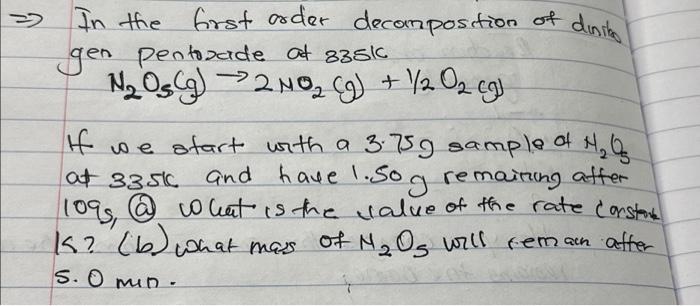 => In the first order decomposition of dinitro
gen pentoxide at 335K
N₂O₅(g) → 2NO₂(g) + 1/2 O₂(g)
If we start with a 3.75g sample of N₂O₅
at 335K and have 1.50g remaining after
109s, (a) What is the value of the rate constant
K? (b) what mass of N₂O₅ will remain after
5.0 min.